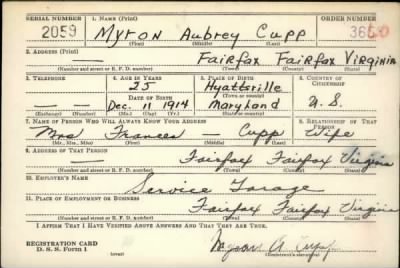 SERIAL NUMBER 1. NAME (Print) ORDER NUMBER
2059 Myron Aubrey Cupp
(First) (Middle) (Last)
2. ADDRESS (Print)
— Fairfax Fairfax Virginia
(Number and street or R. F. D. number) (Town) (County) (State)
3. TELEPHONE 4. AGE IN YEARS 5. PLACE OF BIRTH 6. COUNTRY OF CITIZENSHIP
25 Hyattsville
DATE OF BIRTH (Town or county)
— — Dec. 11 1914 Maryland U. S.
(Exchange) (Number) (Mo.) (Day) (Yr.) (State or country)
7. NAME OF PERSON WHO WILL ALWAYS KNOW YOUR ADDRESS 8. RELATIONSHIP OF THAT PERSON
Mrs Frances — Cupp Wife
(Mr., Mrs., Miss) (First) (Middle) (Last)
9. ADDRESS OF THAT PERSON
— Fairfax Fairfax Virginia
(Number and street or R. F. D. number) (Town) (County) (State)
10. EMPLOYER'S NAME
Service Garage
11. PLACE OF EMPLOYMENT OR BUSINESS
— Fairfax Fairfax Virginia
(Number and street or R. F. D. number) (Town) (County) (State)
I AFFIRM THAT I HAVE VERIFIED ABOVE ANSWERS AND THAT THEY ARE TRUE.
REGISTRATION CARD
D. S. S. Form 1 (over) Myron A Cupp
(Registrant's signature)